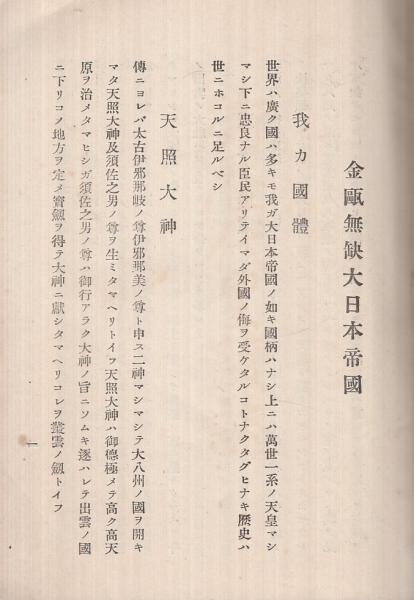 金甌無缺大日本帝國
我カ國體
世界ハ廣ク國ハ多キモ我ガ大日本帝國ノ如キ國柄ハナシ上ニハ萬世一系ノ天皇マシ
マシ下ニ忠良ナル臣民アリテイマダ外國ノ侮ヲ受ケタルコトナクタグヒナキ歷史ハ
世ニホコルニ足ルベシ
天照大神
傳ニヨレバ太古伊邪那岐ノ尊伊邪那美ノ尊ト申ス二神マシマシテ大八州ノ國ヲ開キ
マタ天照大神及須佐之男ノ尊ヲ生ミタマヘリトイフ天照大神ハ御德極メテ高ク高天
原ヲ治メタマヒシガ須佐之男ノ尊ハ御行アラク大神ノ旨ニソムキ逐ハレテ出雲ノ國
ニ下リコノ地方ヲ定メ寶劔ヲ得テ大神ニ獻シタマヘリコレヲ叢雲ノ劔トイフ
一